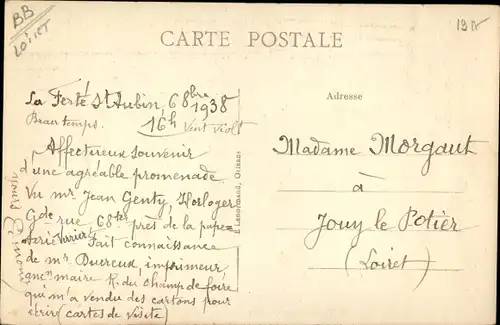 BB
LOIRET
19
CARTE POSTALE
La Ferté St Aubin, 6 8bre 1938
Beau temps. 16h Vent violt
Affectueux souvenir
d'une agréable promenade
Vu mr Jean Genty, Horloger
Gde rue 68ter près de la pape=
terie Fait connaissance
de mr Ducreux, imprimeur,
maire R. du champ de foire
qui m'a vendu des cartons pour
écrire (cartes de visite)
Lenormand, Orléans
Adresse
Madame Morgaut
à
Jouy le Potier
(Loiret)